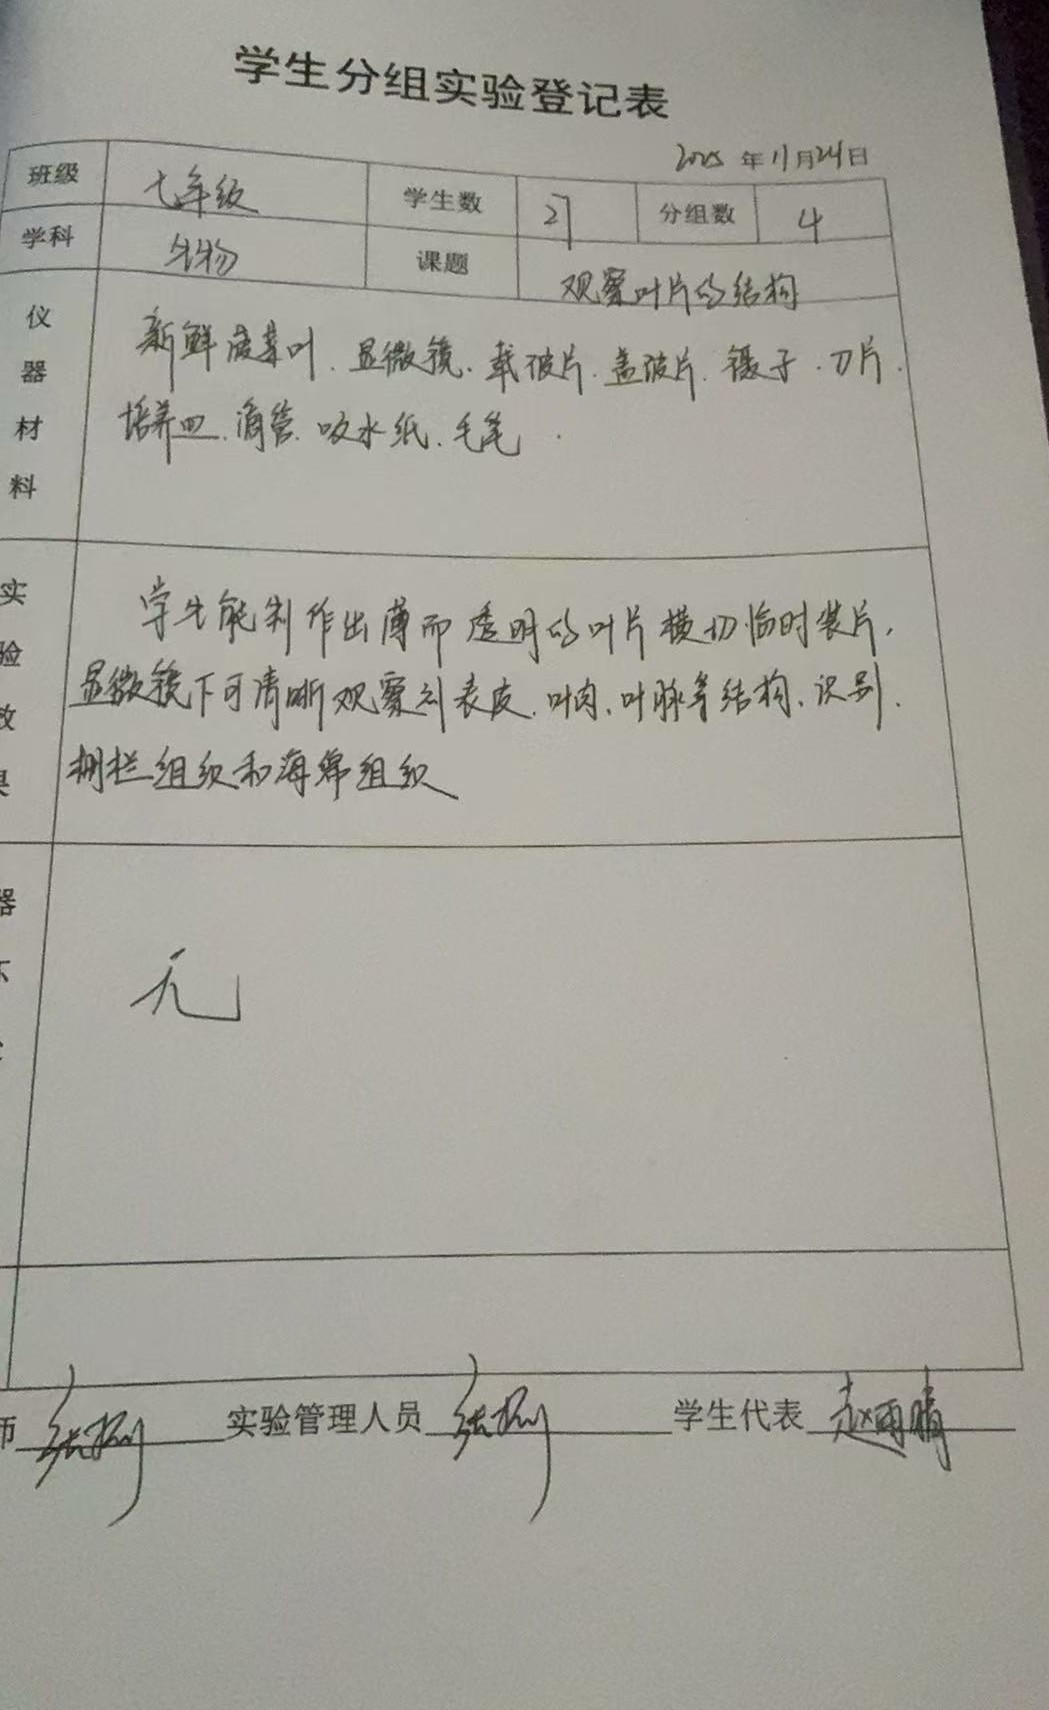 学生分组实验登记表
2025年11月24日
班级 七年级 学生数 27 分组数 4
学科 生物 课题 观察叶片的结构
仪器材料
新鲜菠菜叶、显微镜、载玻片、盖玻片、镊子、刀片、
培养皿、滴管、吸水纸、毛笔
实验效果
学生能制作出薄而透明的叶片横切临时装片，
显微镜下可清晰观察到表皮、叶肉、叶脉等结构、识别、
栅栏组织和海绵组织
器
无
师 实验管理人员 学生代表 赵雨晴